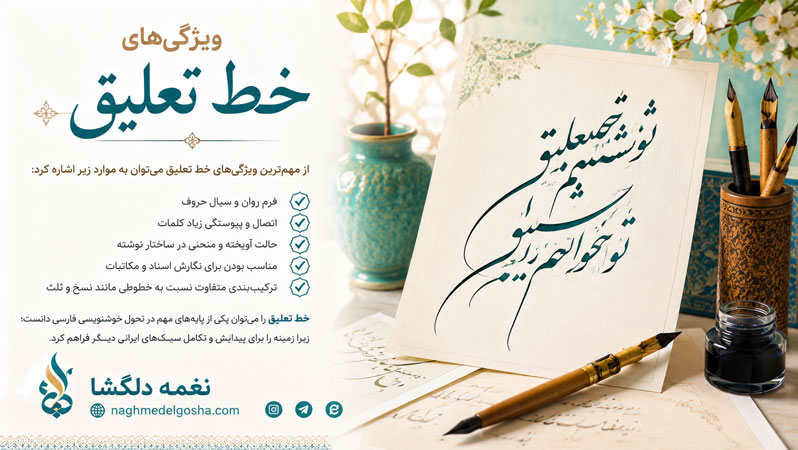 ویژگی‌های
خط تعلیق
از مهم‌ترین ویژگی‌های خط تعلیق می‌توان به موارد زیر اشاره کرد:
فرم روان و سیال حروف
اتصال و پیوستگی زیاد کلمات
حالت آویخته و منحنی در ساختار نوشته
مناسب بودن برای نگارش اسناد و مکاتبات
ترکیب‌بندی متفاوت نسبت به خطوطی مانند نسخ و ثلث
خط تعلیق را می‌توان یکی از پایه‌های مهم در تحول خوشنویسی فارسی دانست؛
زیرا زمینه را برای پیدایش و تکامل سبک‌های ایرانی دیگر فراهم کرد.
نغمه دلگشا
naghmedelgosha.com